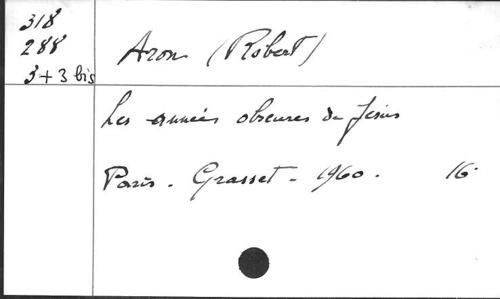 318
288
3+3 bis
Aron (Robert)
Les années obscures de Jésus
Paris - Grasset - 1960. 16°